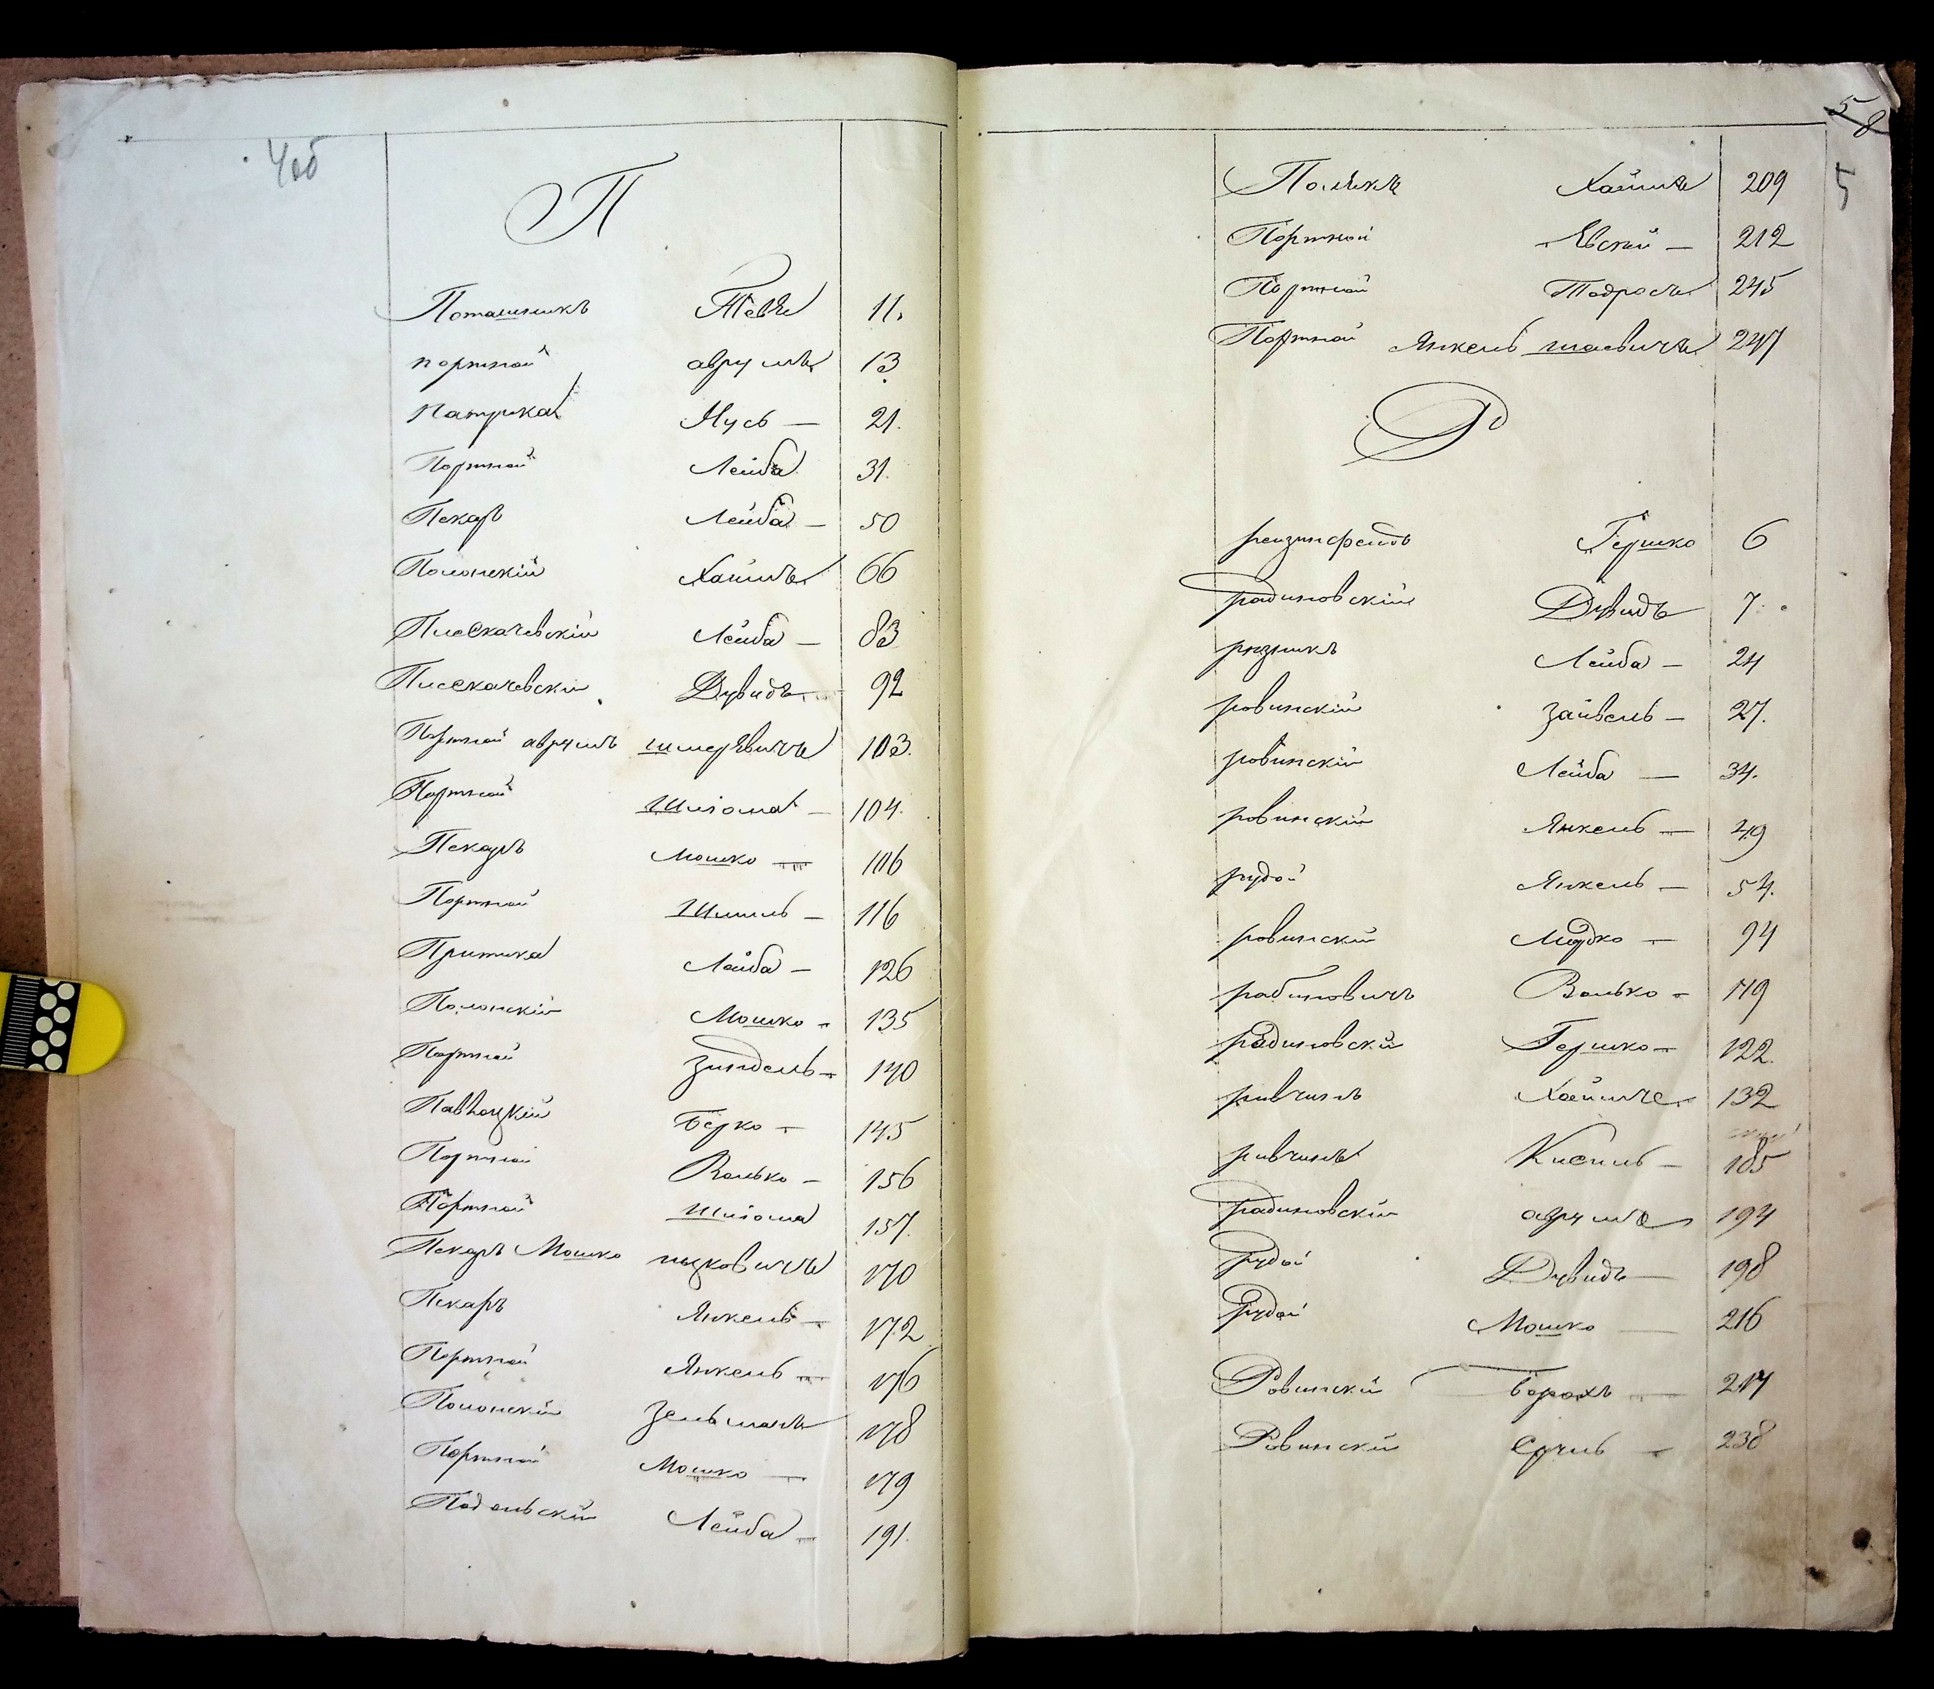 4об
П
Поташникъ Тевье 11.
портной аврумъ 13
Патушка Нусь — 21.
Портной Лейба 31.
Пекарь Лейба — 50
Полонскій Хаимъ 66
Плескачевскій Лейба — 83
Плескачевскій Дувидъ — 92
Портной аврумъ шмерьевичъ 103.
Портной Шліома — 104.
Пекарь Мошко — 106
Портной Шмиль — 116
Притика Лейба — 126
Полонскій Мошко — 135
Портной Зиндель — 140
Павлоцкій Берко — 145
Портной Волько — 156
Портной Шліома 157.
Пекарь Мошко ицковичъ 170
Пекарь Янкель — 172
Портной Янкель — 176
Полонскій Зельманъ 178
Портной Мошко — 179
Подольскій Лейба — 191.
5
8
5
Полякъ Хаимъ 209
Портной Евсей — 212
Портной Тодросъ 245
Портной Янкель шаевичъ 247
Р
Гершко 6
радиновскій Дувидъ 7.
рѣзникъ Лейба — 24
ровинскій Зайвель — 27.
ровинскій Лейба — 34.
ровинскій Янкель — 49
рудой Янкель — 54.
ровинскій Мордко — 94
рабиновичъ Волько — 119
радиновскій Гершко — 122.
ривчинъ Хаимъ 132
ривчинъ Кисиль — 185
радиновскій аврумъ 194
рудой Дувидъ — 198
рудой Мошко — 216
Ровинскій Борохъ — 217
Ровинскій Сруль — 238